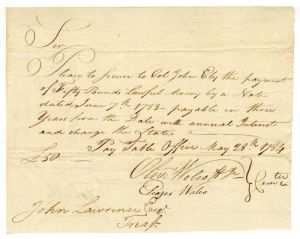 Sir
Please to secure to Col John Ely the payment
of Fifty Pounds Lawful money by a Note
dated June 7th 1783 payable in three
Years from the Date with annual Interest
and charge the State
Pay Table Office May 28th 1784
£50
Olivr Wolcott Jr
Eleazer Wales
Comtee
John Lawrence Esqr
Treasr